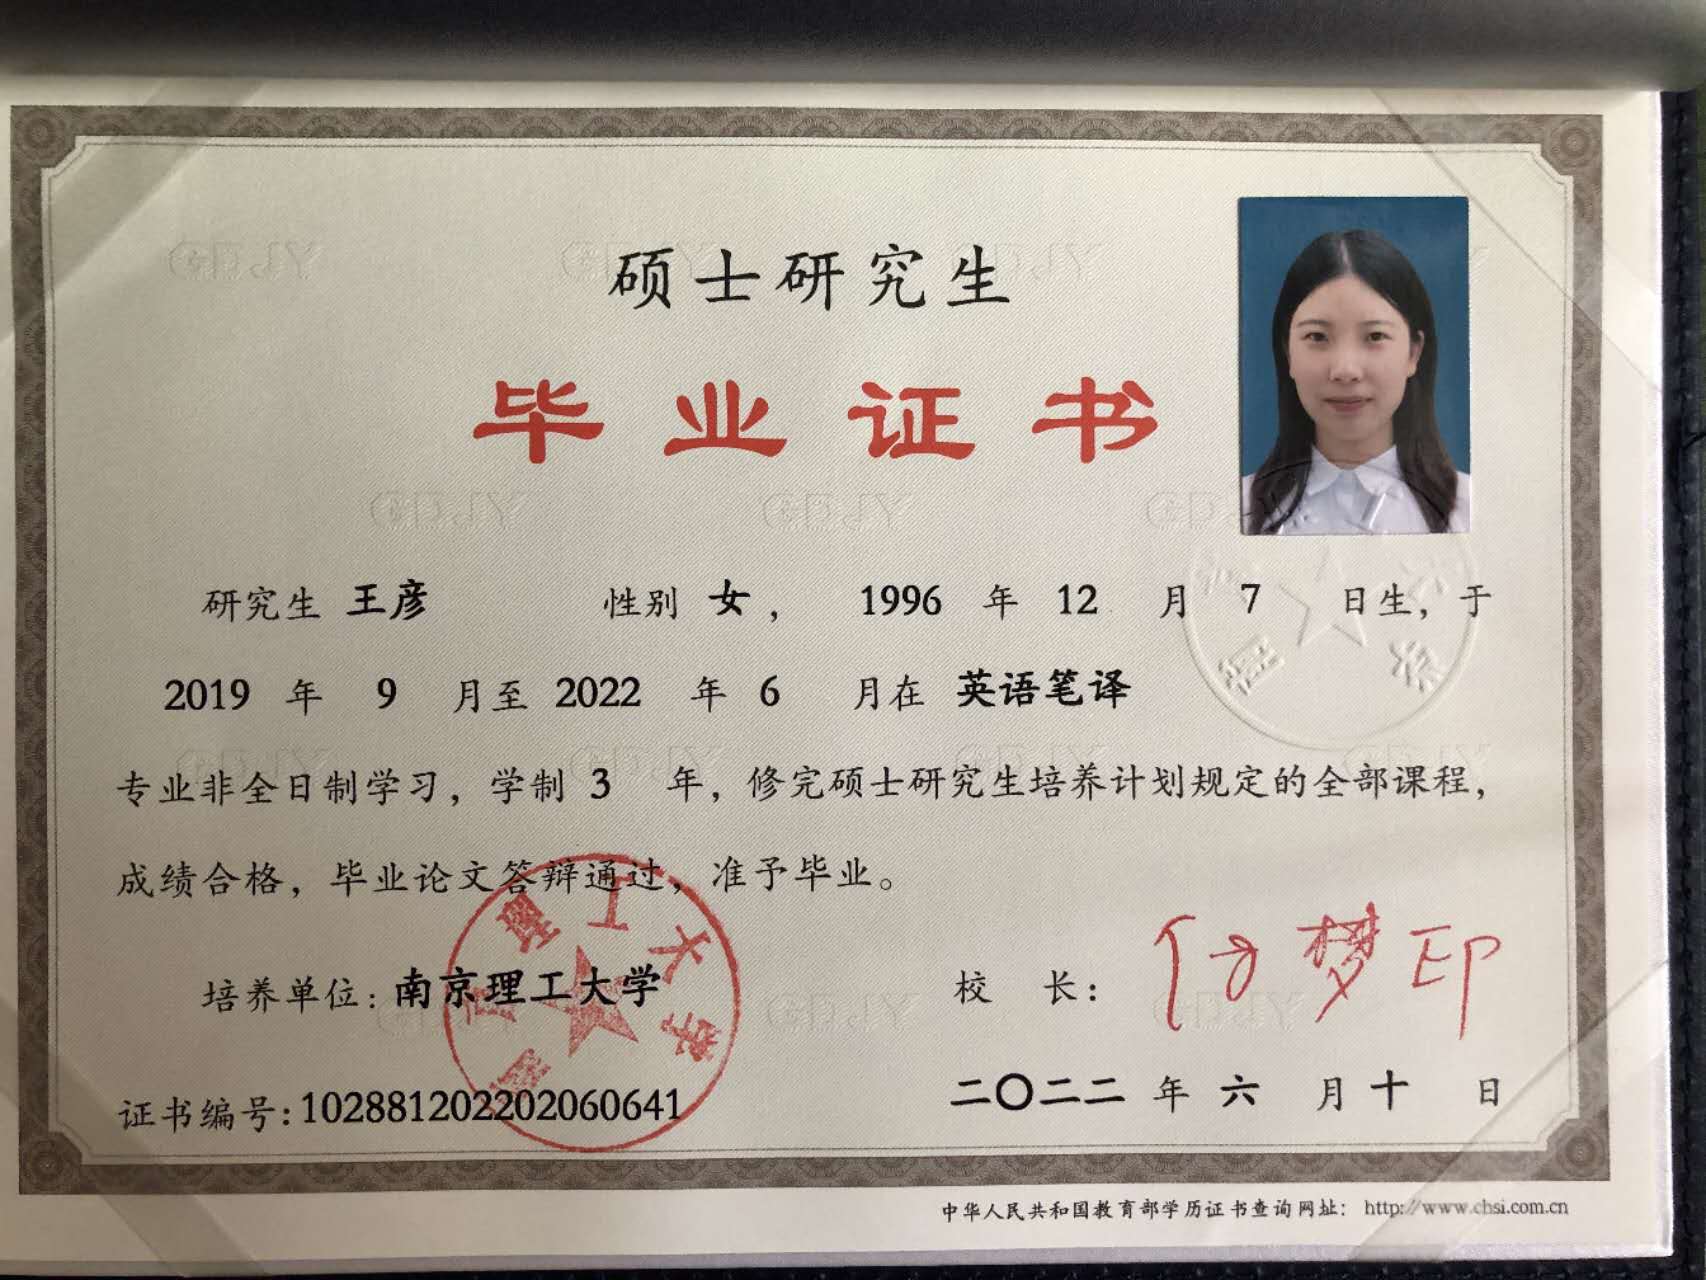 硕士研究生
毕业证书
研究生 王彦 性别 女， 1996 年 12 月 7 日生，于
2019 年 9 月至 2022 年 6 月在 英语笔译
专业非全日制学习，学制 3 年，修完硕士研究生培养计划规定的全部课程，
成绩合格，毕业论文答辩通过，准予毕业。
培养单位：南京理工大学 校 长：
南京理工大学
证书编号：102881202202060641 二〇二二 年 六 月 十 日
中华人民共和国教育部学历证书查询网址： http://www.chsi.com.cn